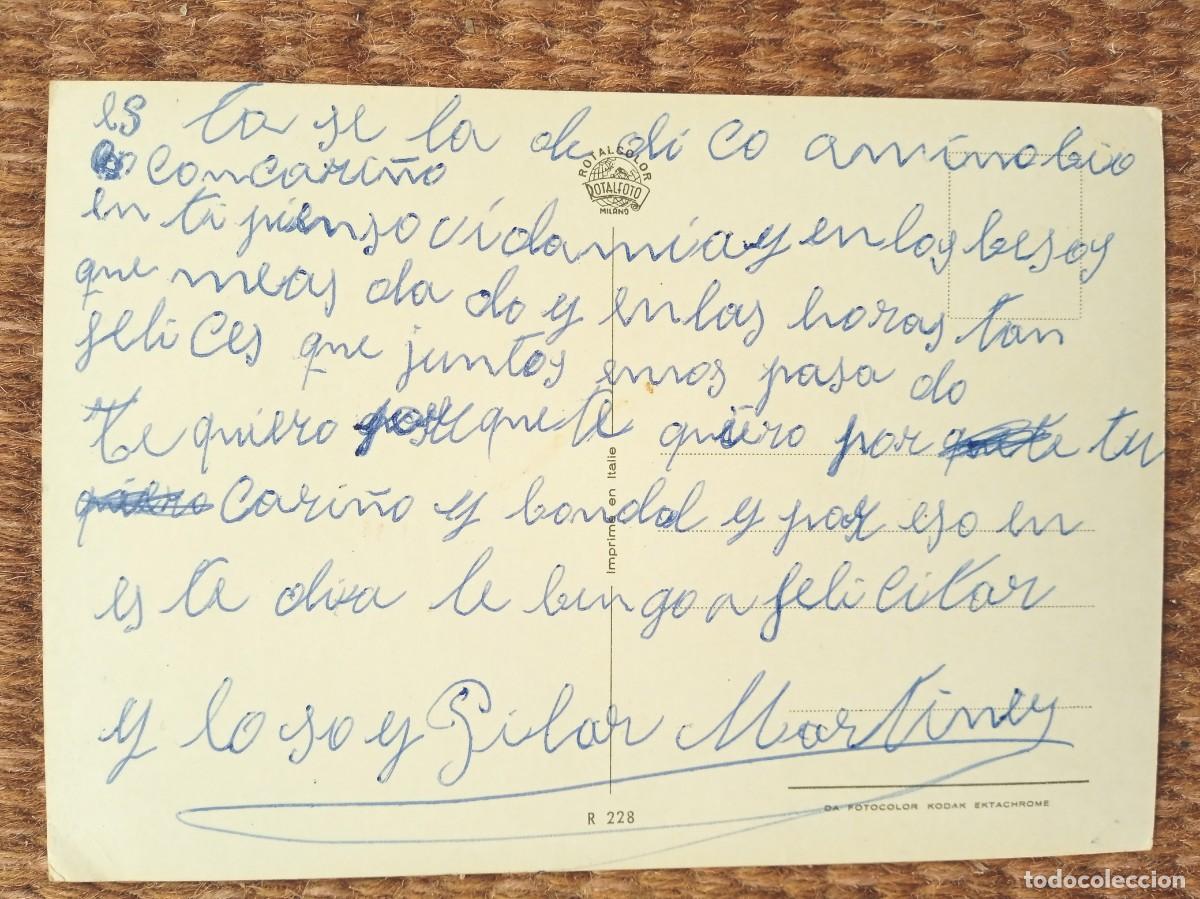 es ta se la de di co aminobio
con cariño
en ti pienso vidamia y en los besos
que meas da do y en las horas tan
felices que juntos emos pasa do
te quiero porque te quiero por tu
cariño y bondad y por eso en
es te dixa te bengo a felicitar
y lo soy Pilar Martinez
ROTALCOLOR
ROTALFOTO
MILANO
Imprimé en Italie
R 228
DA FOTOCOLOR KODAK EKTACHROME
todocoleccion